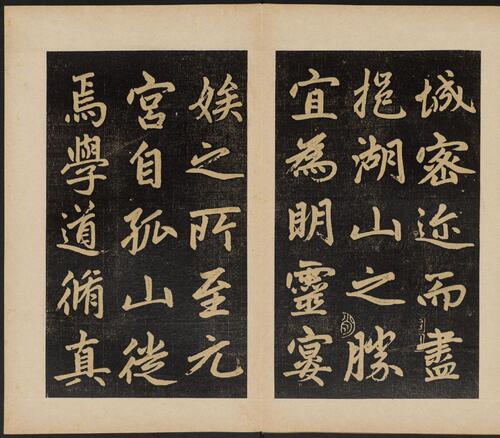 城密迩而盡
挹湖山之勝
宜為明靈宴
娭之所至元
宮自孤山徙
焉學道脩真